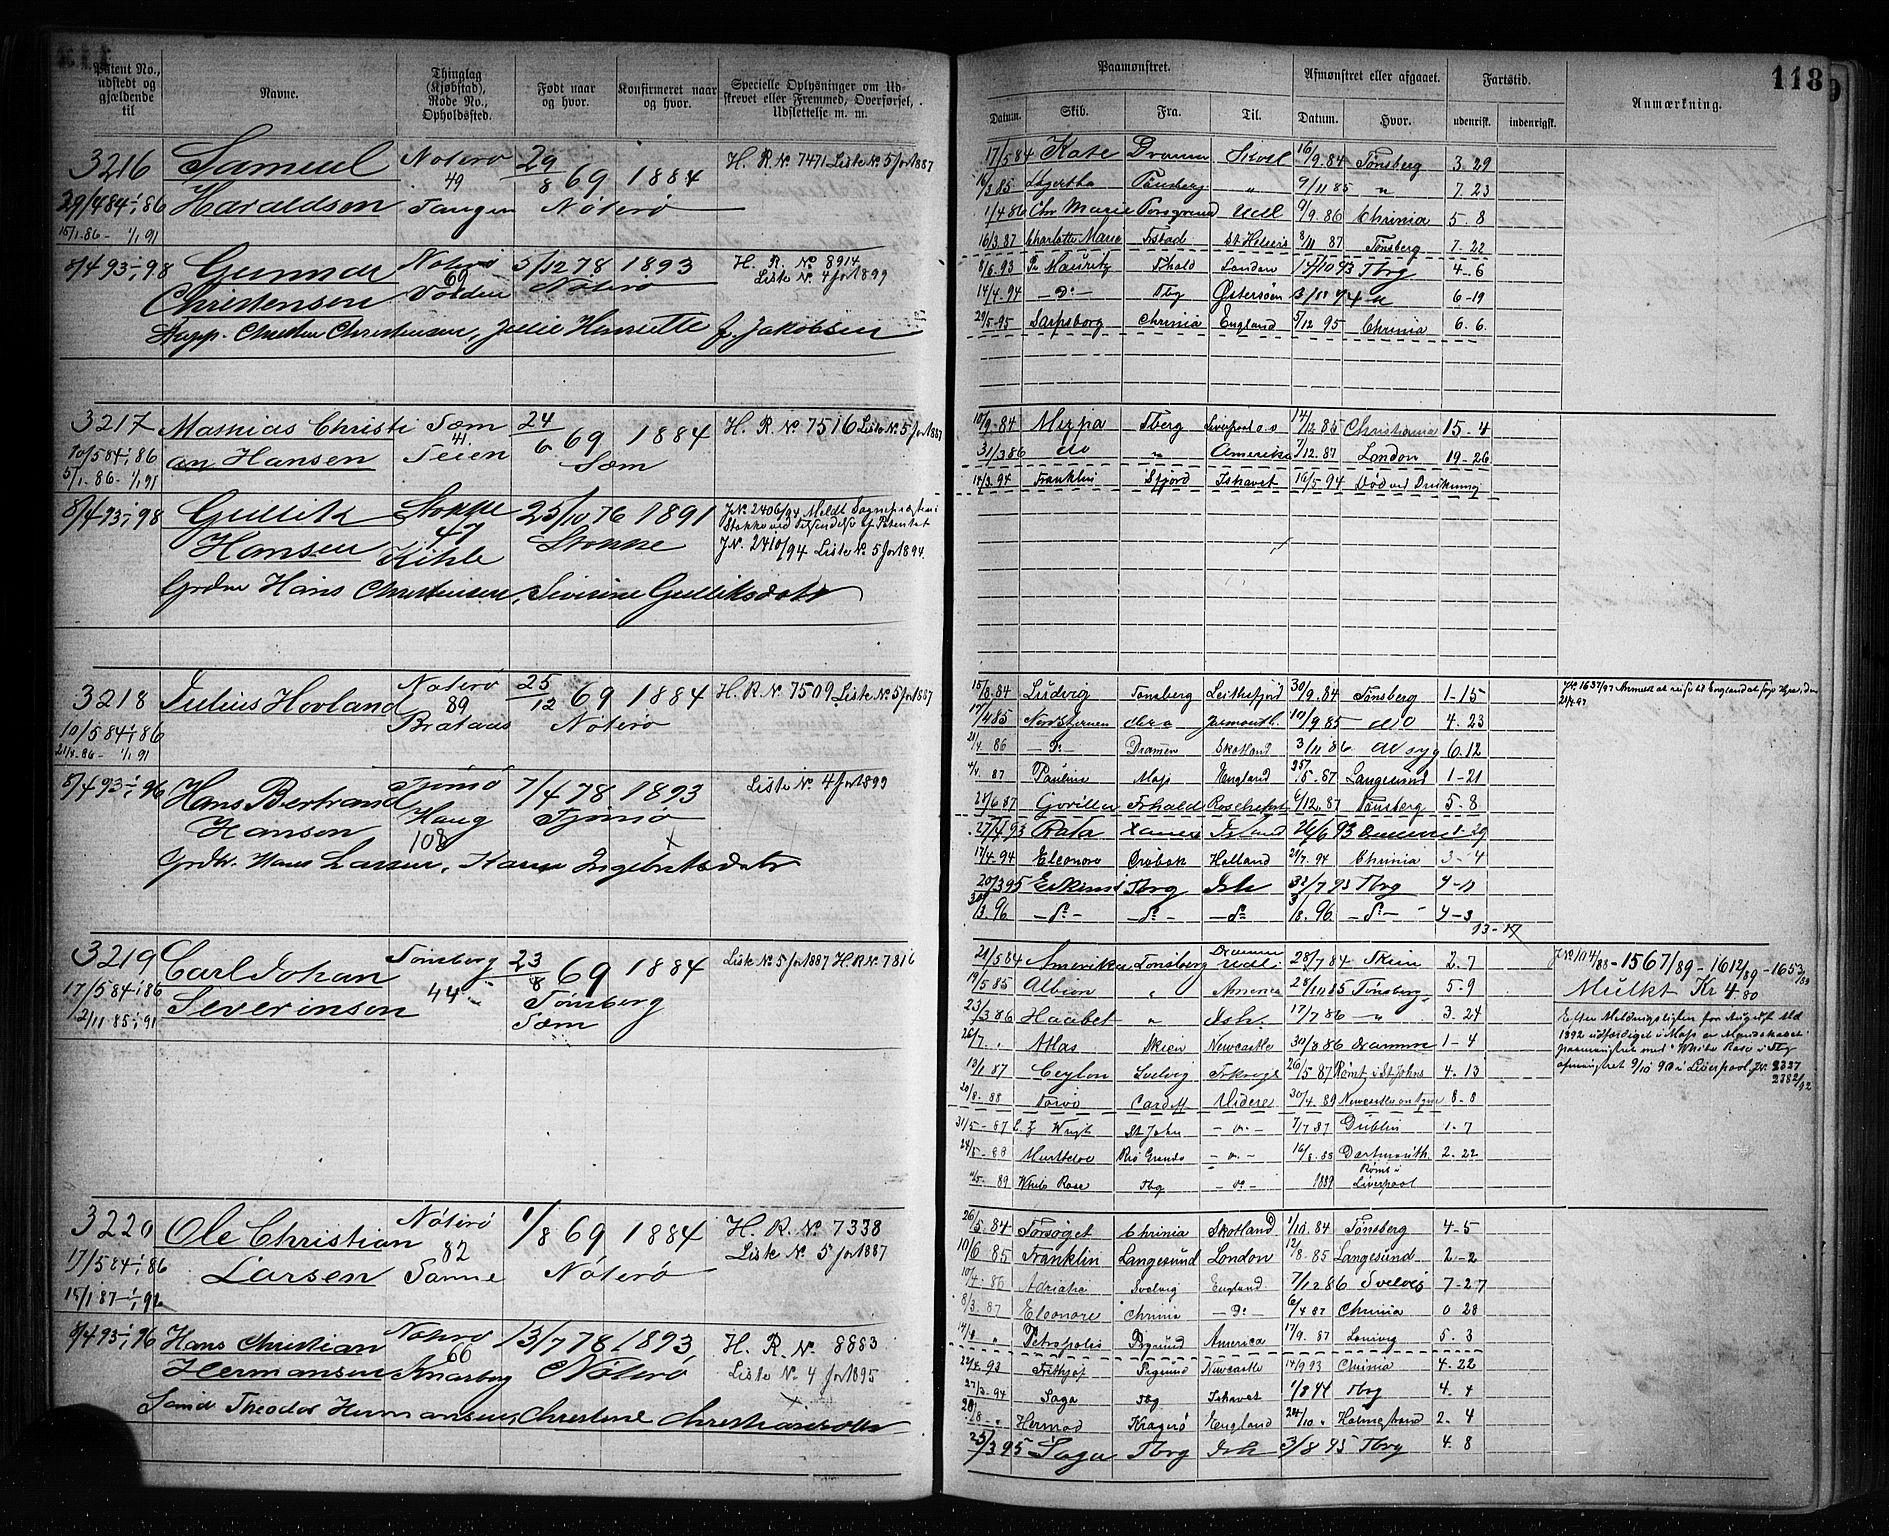 118
Patent No., udstedt og gjældende til
Navne.
Thinglag (Kjøbstad), Rode No., Opholdssted.
Født naar og hvor.
Konfirmeret naar og hvor.
Specielle Oplysninger om Udskrevet eller Fremmed, Overførsel, Udslettelse m. m.
Paamønstret.
Afmønstret eller afgaaet.
Fartstid.
Anmærkning.
Datum. Skib. Fra. Til. Datum. Hvor. udenrigsk. indenrigsk.
3216 Samuel Nøterø 29/8 69 1884 H. R. No 7471 Liste No 5 for 1887
29/4 84 - 1/1 86 Haraldsen 49 Tangen Nøterø
15/1 86 - 1/1 91
17/5 84 Kate Dramm Skotl 16/9 84 Tønsberg 3. 29
Tønsberg " 9/11 85 " 7. 23
1/4 86 Chr Marie Porsgrund Udl 9/9. 86 Chrinia 5. 8
16/3. 87 Charlotte Marie Frstad St Helens 8/11 87 Tønsberg 7. 22
8/4 93 - 1/1 98 Gunnar Nøterø 5/12 78 1893 H. R. No 8914
Christensen 69 Volden Nøterø Liste No 4 for 1899
Christen Christensen, Julie Henriette f. Jakobsen
8/6. 93 Fhald London 14/10 93 Tbrg 4 - 6
14/4. 94 - Do - Tbg Østersøen 6 - 19
29/5 95 Sarpsborg Chrinia England 5/12 95 Chrinia 6. 6.
3217 Mathias Christi Sæm 24/6 69 1884 H. R. No 7516 Liste No 5 for 1887
10/5 84 - 1/1 86 an Hansen 41. Teien Sæm
5/1. 86 - 1/1 91
10/9. 84 Tberg Liverpool o.s 14/12 85 Christiania 15. 4
31/3 86 do " Amerika 7/12. 87 London 19. 26
14/3. 94 Franklin Sfjord Ishavet 16/5 94 Død ved Drukning
8/4 93 - 1/1 98 Gullik Stokke 25/10 76 1891 J. No 2406/94 Meldt Sognepræsten i
Hansen 47 Kihle Stokke Stokke ved Tilsendelse af Patentet
J. No. 2410/94 Liste No. 5 for 1894.
Grdbr Hans Christensen, Severine Gulliksdatr
3218 Julius Hovland Nøterø 25/12 69 1884 H. R. No. 7509 Liste No 5 for 1887
10/5 84 - 1/1 86 89 Brataas Nøterø
21/4. 86 - 1/1 91
15/8. 84 Ludvig Tønsberg Leithsfjord 30/9. 84 Tønsberg 1 - 15
17/4 85 Nordstjernen do Yarmouth. 10/9. 85 do 4. 23
21/4. 86 - Do - Dramen Skotland 3/11 86 6. 12
4/4. 87 Pauline Moss England 7/5. 87 Langesund 1 - 21
28/6 87 Gorilla Frhald Rochefort 6/12. 87 Tønsberg 5. 8
J. No. 1637/97
8/4 93 - 1/1 96 Hans Bertrand Tjømø 7/4 78 1893 Liste No. 4 for 1899
Hansen Haug 108 Tjømø
Grdbr. Hans Larsen, Karen Ingebretsdatr
27/4 93 Rata 26/6 93 1 - 29
17/4. 94 Eleonore Drøbak Holland 21/7. 94 Chrinia 3 - 4
20/3 95 Tbrg Ish Tbrg 4 - 11
30/3. 96 - Do - - Do - - Do - 3/8. 96 - Do - 4 - 3
13 - 17
3219 Carl Johan Tønsberg 23/8 69 1884 Liste No 5 for 1887 H R No. 7816
17/5 84 - 1/1 86 Severinsen 44 Tønsberg
2/11 85 - 1/1 91 Sæm
21/5 84 Amerika Tønsberg Drammen Udl. 28/7 84 Skien 2. 7
19/5 85 Albion " America 28/11 85 Tønsberg 5 - 9
23/3 86 Haabet " Ish. 17/7 86 " 3. 24
26/7. " Atlas Skien Newcastle 30/8 86 Dramme 1 - 4
13/1 87 Ceylon Svelvig 26/5 87 Rømt i St Johns 4. 13
20/8. 88 Cardiff Videre 30/4. 89 Newcastle on Tyne 8 - 8
31/5 - 87 St John - " - 7/7 87 Dublin 1. 7
24/5 - 88 Rio Grande - " - 16/8. 88 Dartmouth 2. 22
- 89 White Rose Tbg - Do - 1889 Rømt i Liverpool
J No 104/88 - 1567/89 - 1612/89 - 1653/89
Mulkt Kr 4.80
Efter Meldingslisten for August Md
1892 udfærdiget i Moss er Mandskabet
paamønstret med "White Rose" i Tbg
afmønstret 9/10 90 i Liverpool, Jr. 2327
2382/92
3220 Ole Christian Nøterø 1/8 69 1884 H. R. No. 7338
17/5 84 - 1/1 86 Larsen 82 Sanne Nøterø Liste No. 5 for 1887
15/1 87 - 1/1 92
26/5. 84 Forsøget Chrinia Skotland 1/10. 84 Tønsberg 4 - 5
10/6 85 Franklin Langesund London 12/8. 85 Langesund 2 - 2
10/4. 86 Adriana Svelvig England 7/12 86 Svelvig 7 - 27
8/3. 87 Eleonore Chrinia - Do - 6/4 87 Chrinia 0 28
14/4 " Petropolis Pgrund America 17/9. 87 5. 3
8/4 93 - 1/1 96 Hans Christian Nøterø 13/7 78 1893, H. R. No. 8883
Hermansen 66 Knarberg Nøterø Liste No. 4 for 1895
Theodor Hermansen, Christine Christiansdatr
24/4. 93 Frithjof Pegrund Newcastle 14/9 93 Chrinia 4. 22
27/3. 94 Saga Tbg Ishavet 1/8 94 Tbrg 4. 4
28/8. " Hermod Kragerø England 24/10 " Holmestrand 2. 4
25/3 95 Saga Tbrg Ish 3/8 95 Tbrg 4. 8